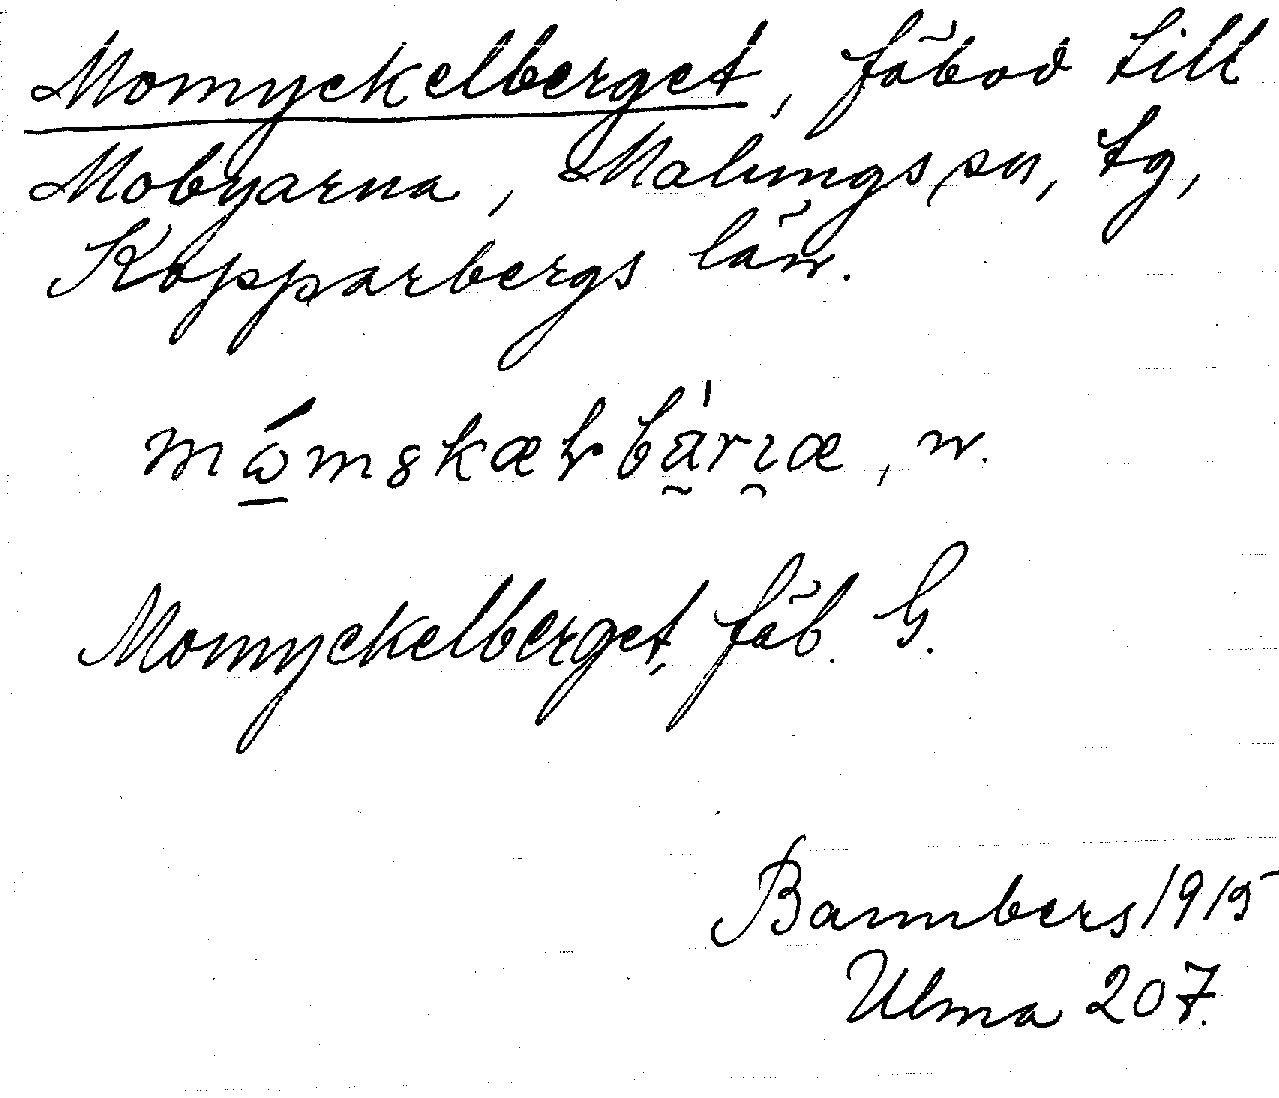 Momyckelberget, fäbod till
Mobyarna, Malungs sn, tg,
Kopparbergs län.
Momyckelberget, fäb. G.
Bannbers 1915
Ulma 207.